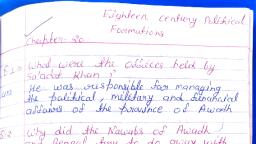 Eighteen century Political
Formations
Chapter- 20
What were the offices held by
Sa'adat Khan ?
He was responsible for managing
the political, military and financial
affairs of the province of Awadh
Why did the Nawabs of Awadh
and Bengal try to do away with